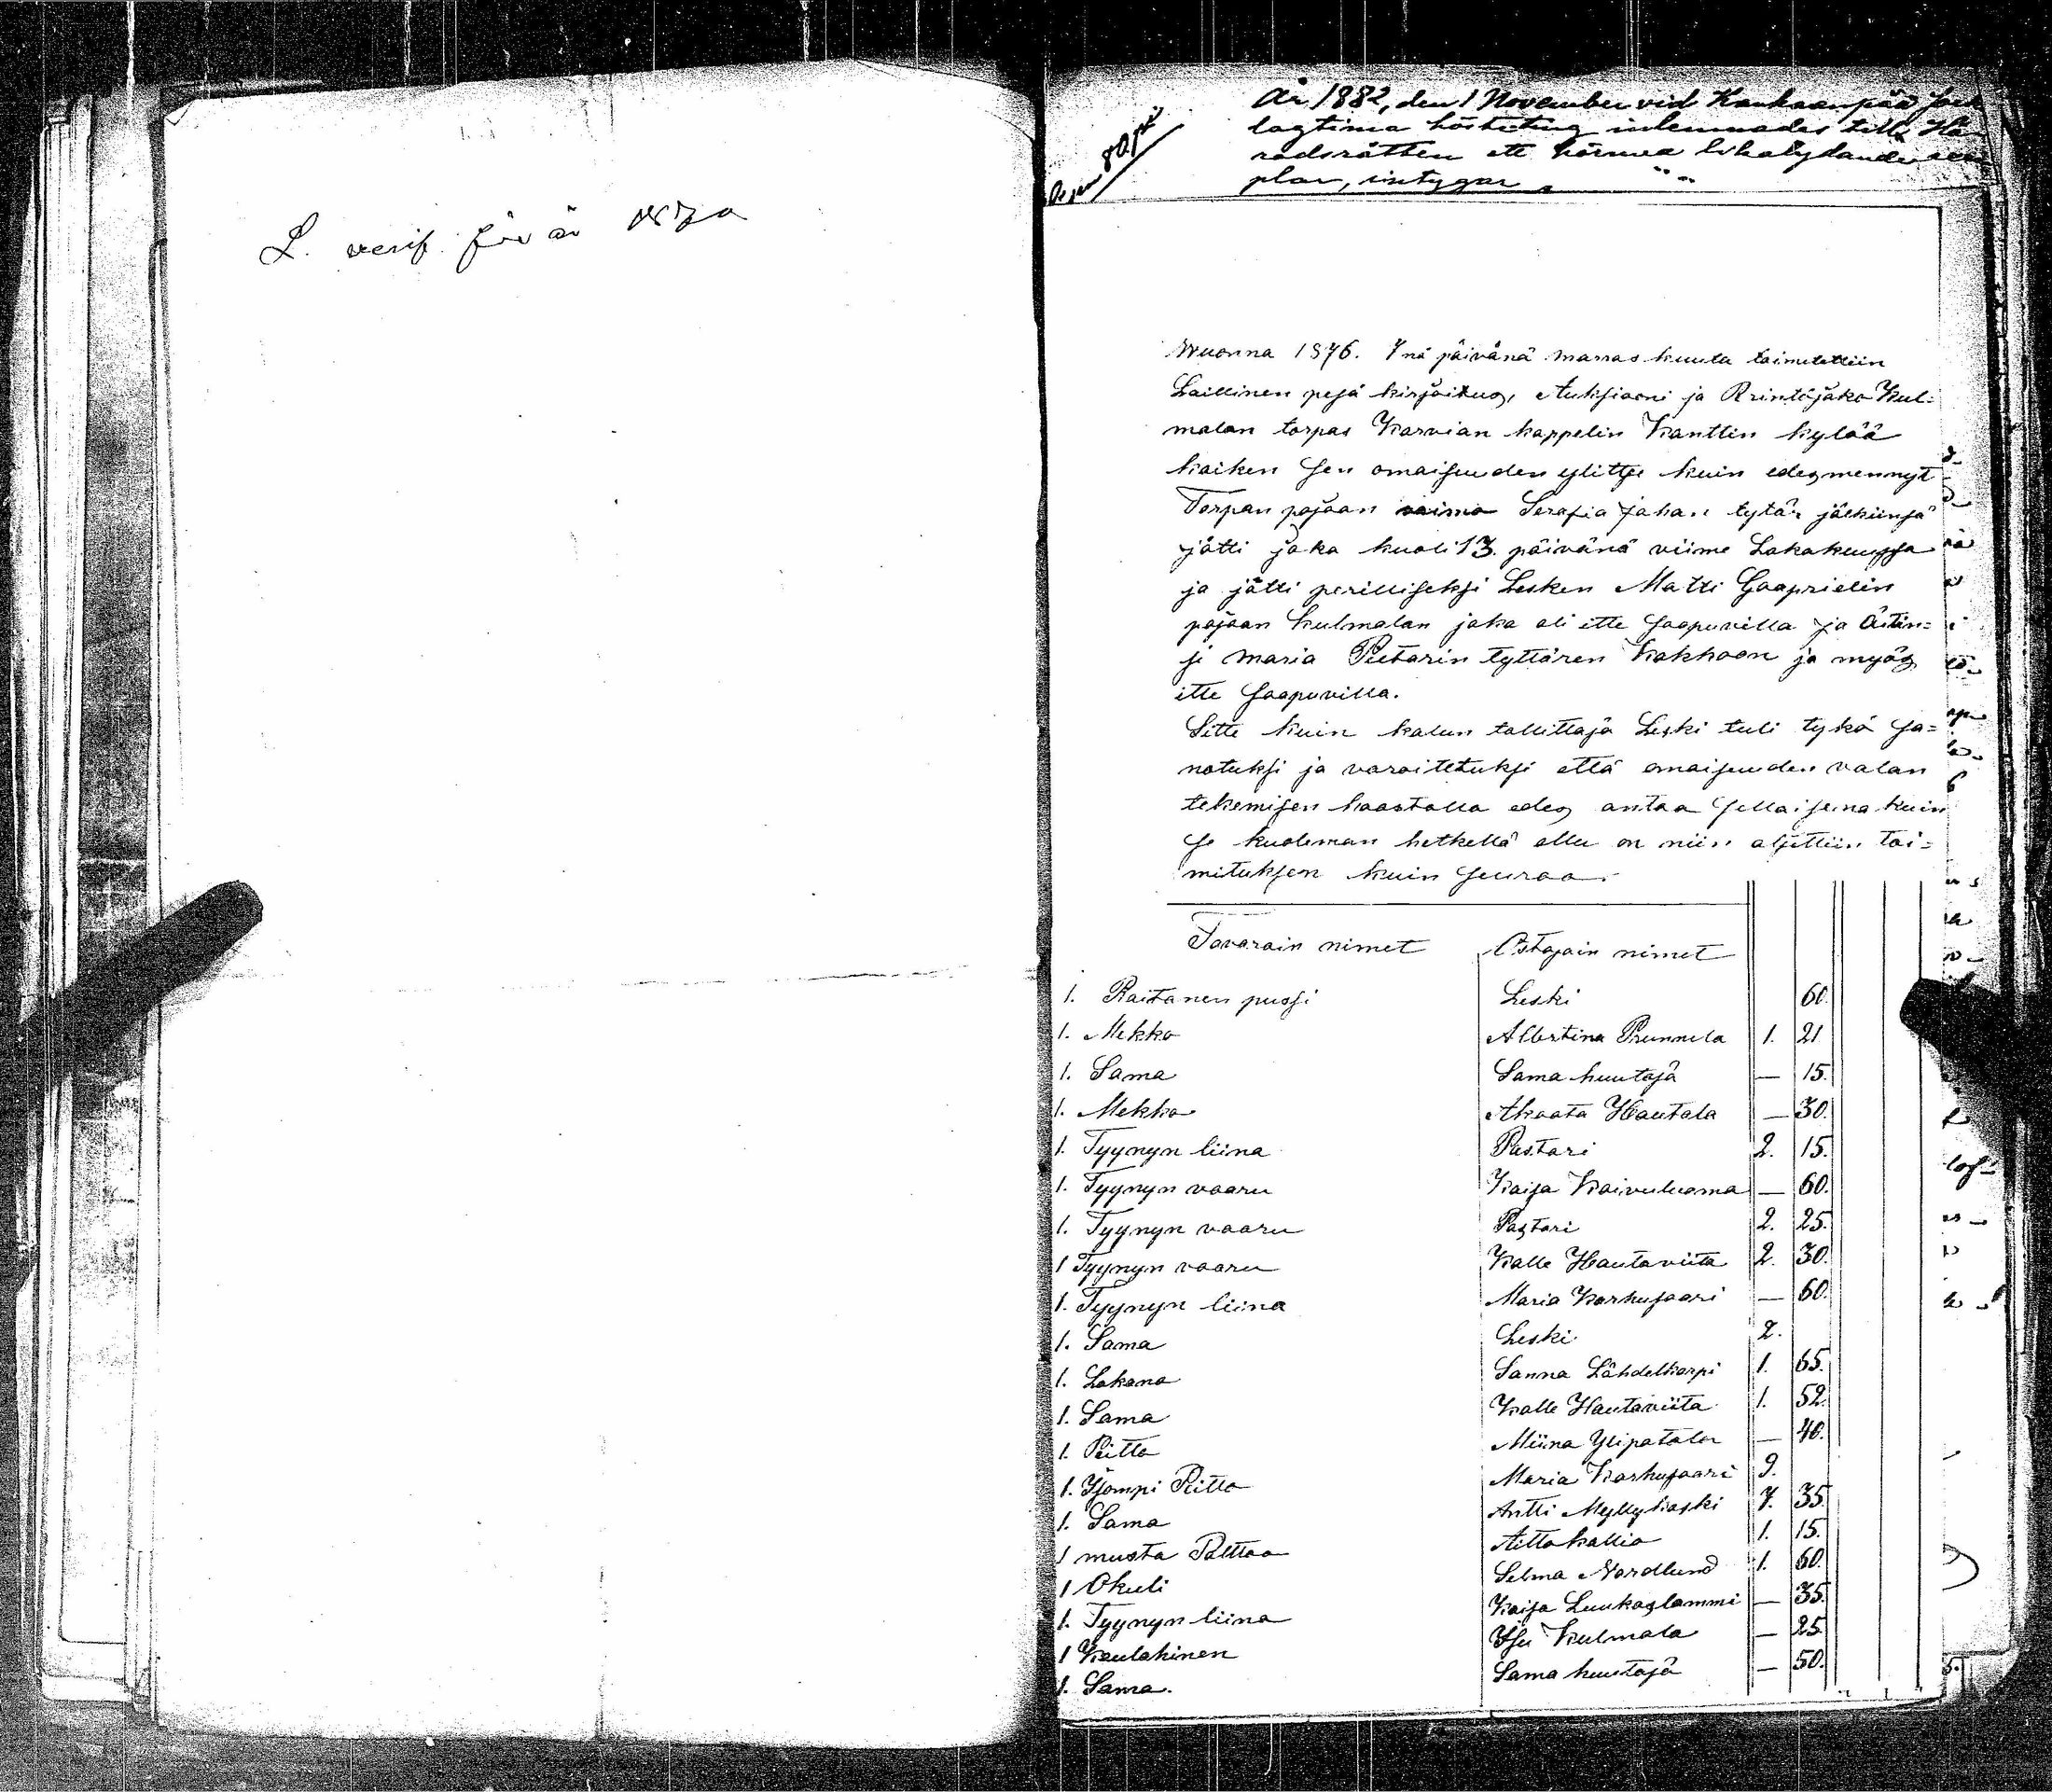 L. verif. för år
År 1882, den 1 November vid Kankaanpää
lagtima hösteting inlemnades till Hä-
radsrätten ett härmed likalydande exem-
plar, intygar
80 p:i
Wuonna 1876. 7nä päivänä marraskuuta toimitettiin
Laillinen pesä kirjoitus, Auksiooni ja Perintöjako Kul=
malan torpas Karvian kappelin Kanttin kylää
kaiken sen omaisuuden ylittse kuin edesmennyt
Torpan pojaan vaimo Serafia Johan tytär jälkiinsä
jätti joka kuoli 13. päivänä viime Lokakuussa
ja jätti perilliseksi Lesken Matti Gaaprielin
pojaan Kulmalan joka oli itte saapuvilla ja Äitin=
si Maria Pietarin tyttären Kokkoon ja myös
itte saapuvilla.
Sitte kuin kalun tallittaja Leski tuli tykö sa=
notuksi ja varoitetuksi että omaisuuden valan
tekemisen haastolla edes antaa sellaisena kuin
se kuoleman hetkellä ollu on niin aljettiin toi=
mituksen kuin seuraa.
Tavarain nimet Ostajain nimet
1. Raitanen pussi Leski 60.
1. Mekko Albertina Prunnila 1. 21
1. Sama Sama huutaja — 15.
1. Mekko Akaata Hautala — 30.
1. Tyynyn liina Pastari 2. 15.
1. Tyynyn vaaru Kaisa Kaivuluoma — 60.
1. Tyynyn vaaru Pastari 2. 25.
1 Tyynyn vaaru Kalle Hautaviita 2. 30.
1. Tyynyn liina Maria Karhusaari — 60.
1. Sama Leski 2.
1. Lakana Sanna Lähdelkorpi 1. 65.
1. Sama Kalle Hautaviita 1. 52.
1. Peitto Miina Ylipatala — 40.
1. Ysompi Peitto Maria Karhusaari 9.
1. Sama Antti Myllykoski 7. 35.
1 musta Palttoo Aittokallio 1. 15.
1 Okuli Selma Nordlund 1. 60.
1. Tyynyn liina Kaisa Luukaslammi — 35.
1 Kaulahinen Kulmala — 25.
1. Sama. Sama huutaja — 50.